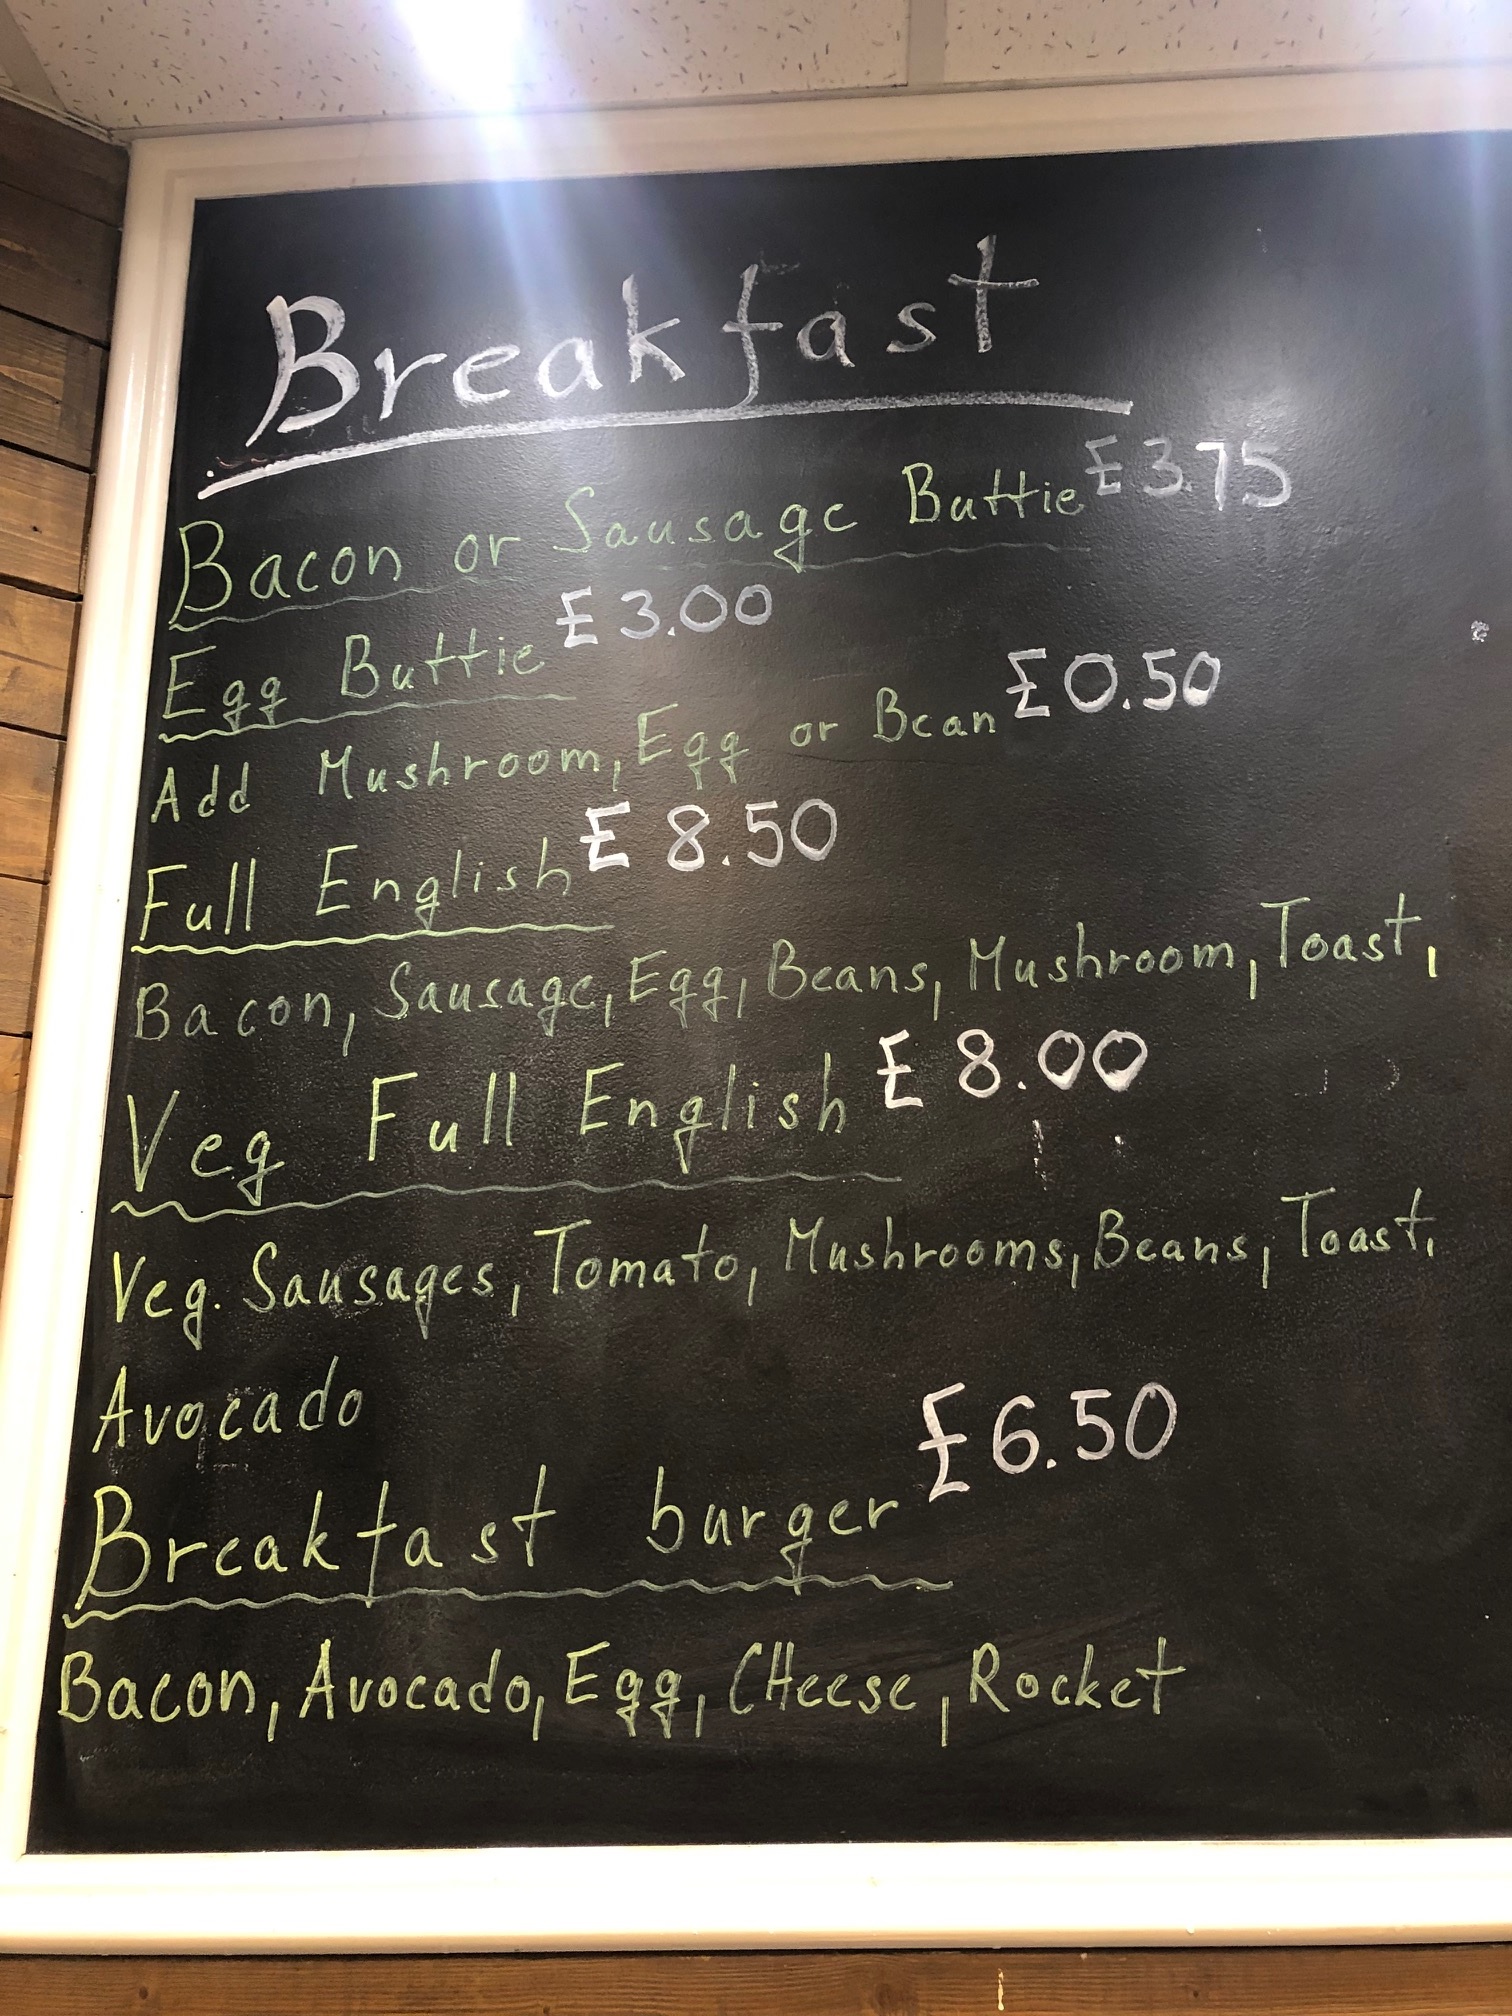 Breakfast
Bacon or Sausage Buttie £3.75
Egg Buttie £3.00
Add Mushroom, Egg or Bean £0.50
Full English £8.50
Bacon, Sausage, Egg, Beans, Mushroom, Toast,
Veg Full English £8.00
Veg. Sausages, Tomato, Mushrooms, Beans, Toast,
Avocado
Breakfast burger £6.50
Bacon, Avocado, Egg, CHeese, Rocket